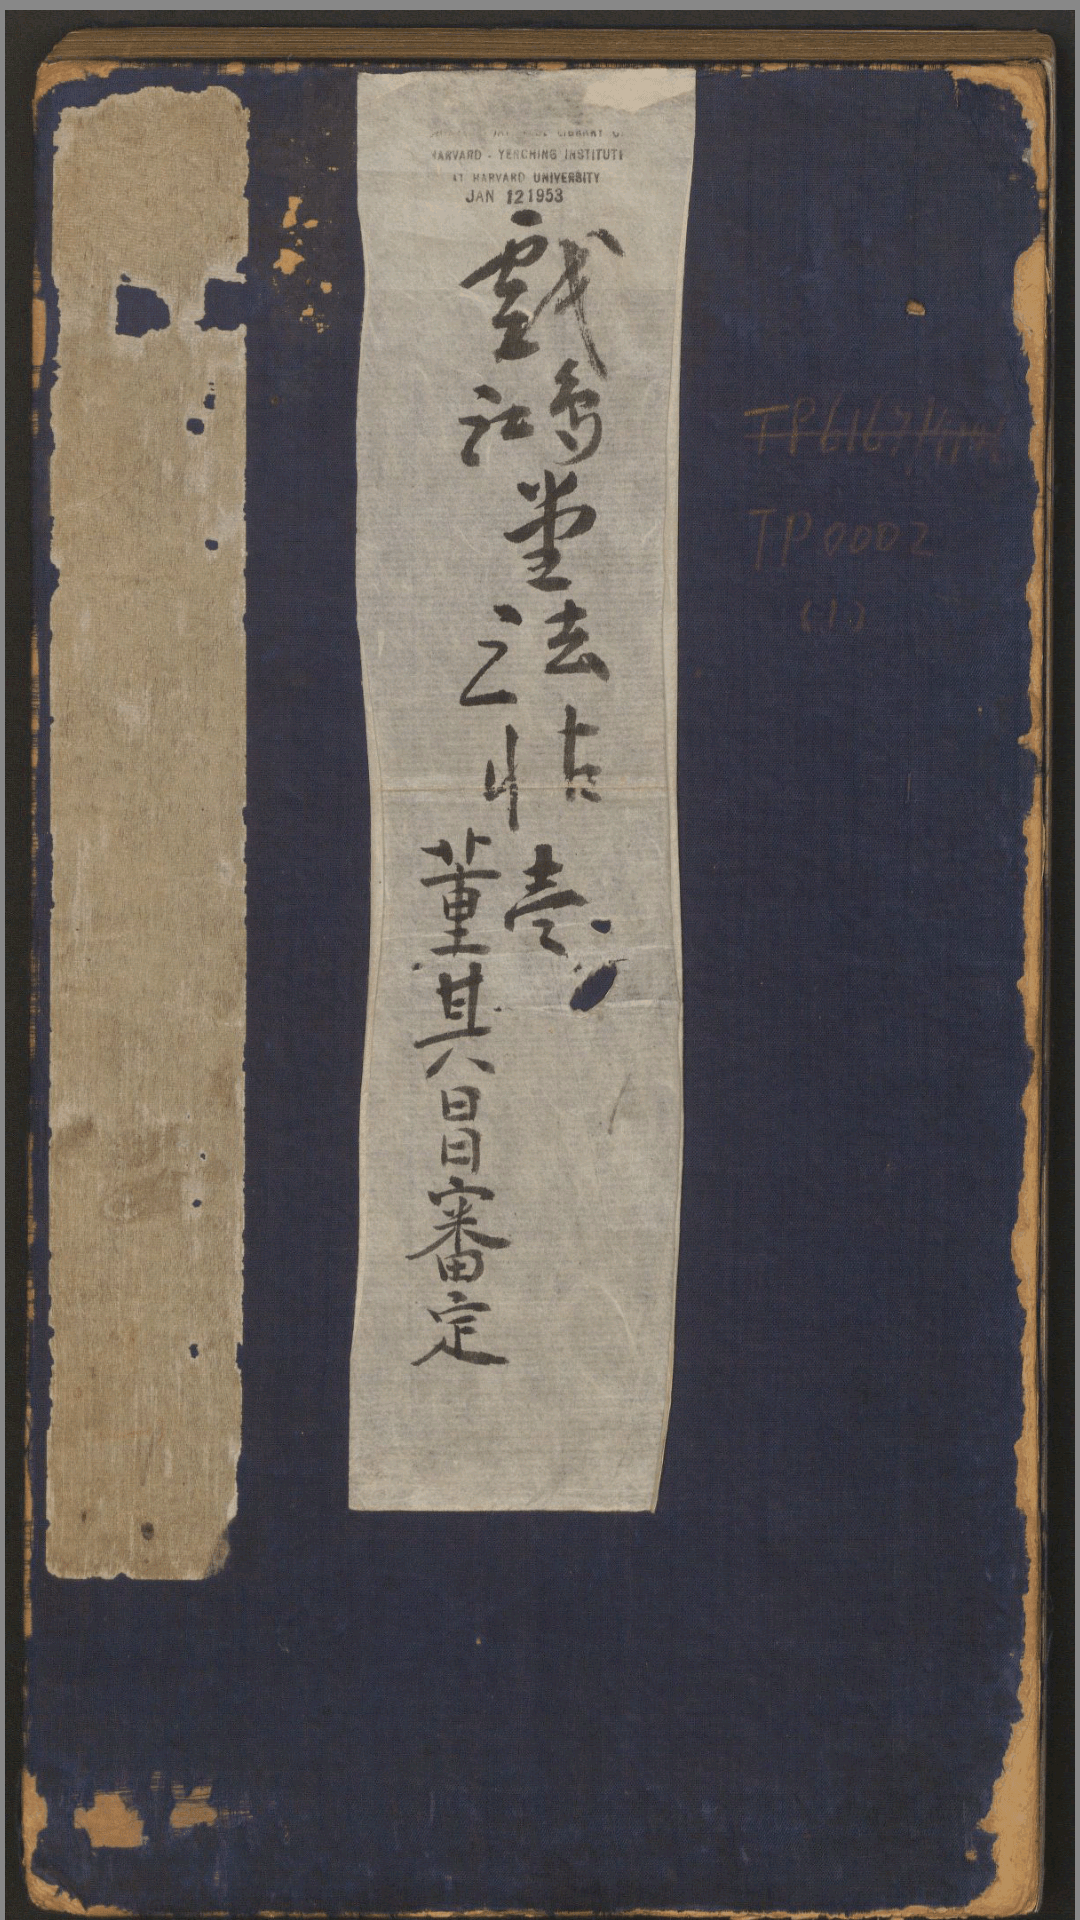 LIBRARY
HARVARD - YENCHING INSTITUTE
AT HARVARD UNIVERSITY
JAN 12 1953
戲鴻堂法帖 壹
董其昌審定
TP6167
TP0002
(1)